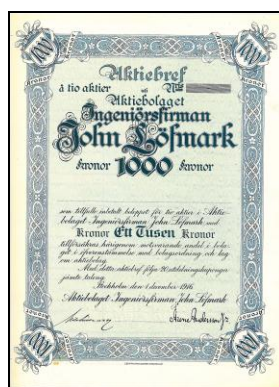 1000 1000
Kronor Kronor
Aktiebref
à tio aktier
uti
Aktiebolaget
Ingeniörsfirman
John Löfmark
kronor 1000 kronor
som tillfullo inbetalt beloppet för tio aktier i Aktie-
bolaget Ingeniörsfirman John Löfmark med
Kronor Ett Tusen Kronor
tillförsäkras härigenom motsvarande andel i bola-
get i öfverensstämmelse med bolagsordning och lag
om aktiebolag.
Med detta aktiebref följa 20 utdelningskuponger
jämte talong.
Stockholm den 1 december 1916
Aktiebolaget Ingeniörsfirman John Löfmark
1000 1000